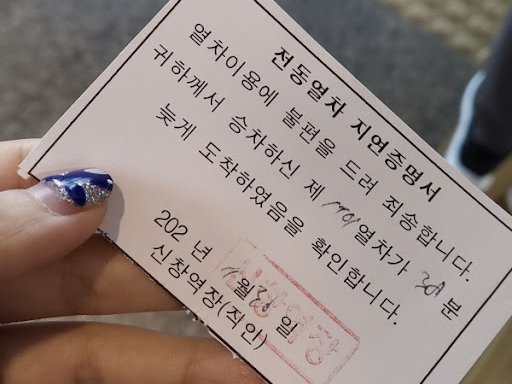 전동열차 지연증명서
열차이용에 불편을 드려 죄송합니다.
귀하께서 승차하신 제 열차가 30 분
늦게 도착하였음을 확인합니다.
202 년 월 30 일
신창역장(직인)